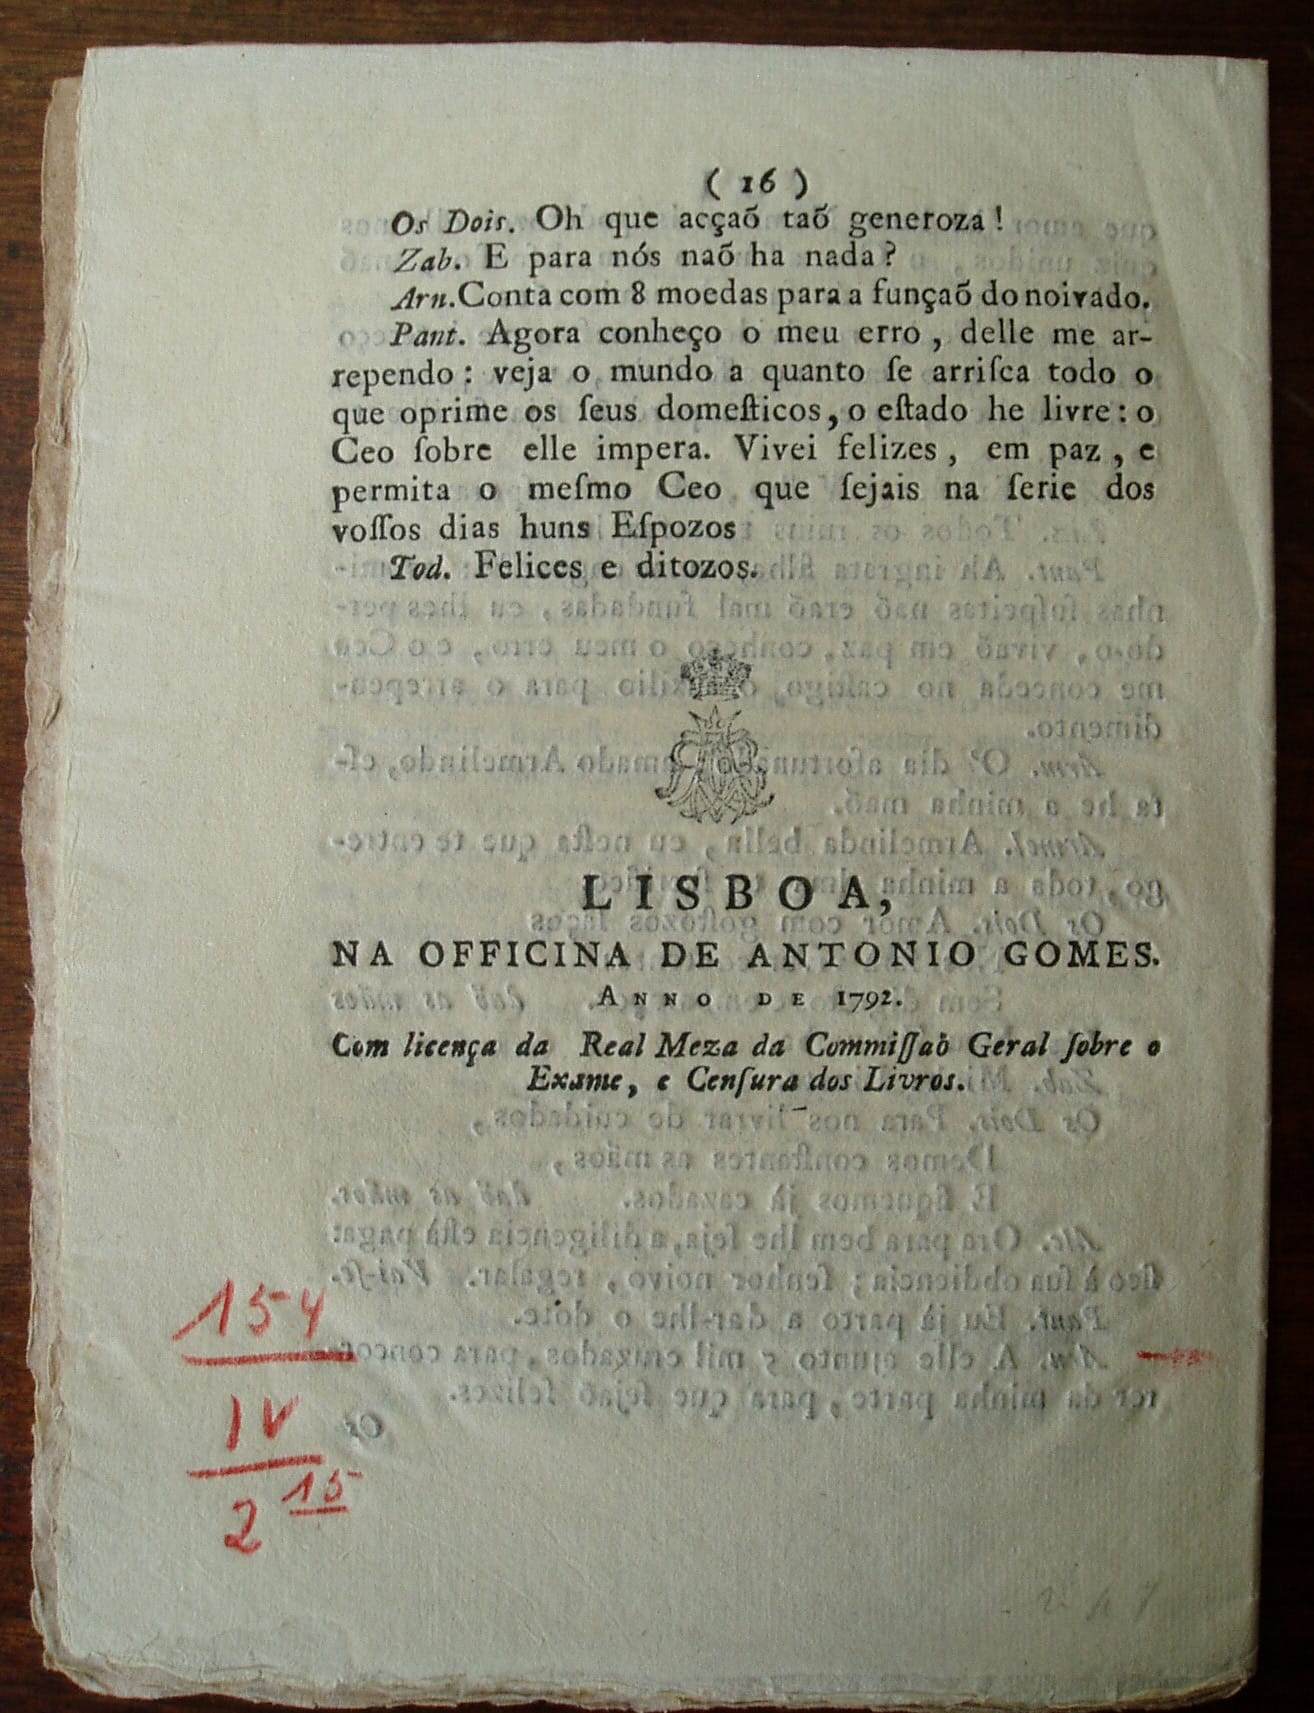 ( 16 )
Os Dois. Oh que acçaõ taõ generoza !
Zab. E para nós naõ ha nada ?
Arn. Conta com 8 moedas para a funçaõ do noivado.
Pant. Agora conheço o meu erro , delle me ar-
rependo : veja o mundo a quanto ſe arriſca todo o
que oprime os ſeus domeſticos, o eſtado he livre : o
Ceo ſobre elle impera. Vivei felizes , em paz , e
permita o meſmo Ceo que ſejais na ſerie dos
voſſos dias huns Eſpozos
Tod. Felices e ditozos.
LISBOA,
NA OFFICINA DE ANTONIO GOMES.
ANNO DE 1792.
Com licença da Real Meza da Commiſſaò Geral ſobre o
Exame, e Cenſura dos Livros.
154
IV
2 15